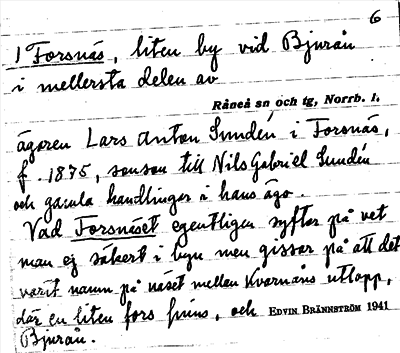 6
1 Forsnäs, liten by vid Bjurån
i mellersta delen av
Råneå sn och tg, Norrb. l.
ägaren Lars Anton Sundén i Forsnäs,
f. 1875, sonson till Nils Gabriel Sundén
och gamla handlingar i hans ägo.
Vad Forsnäset egentligen syftar på vet
man ej säkert i byn men gissar på att det
varit namn på näset mellan Kvarnåns utlopp,
där en liten fors finns, och EDVIN BRÄNNSTRÖM 1941
Bjurån.